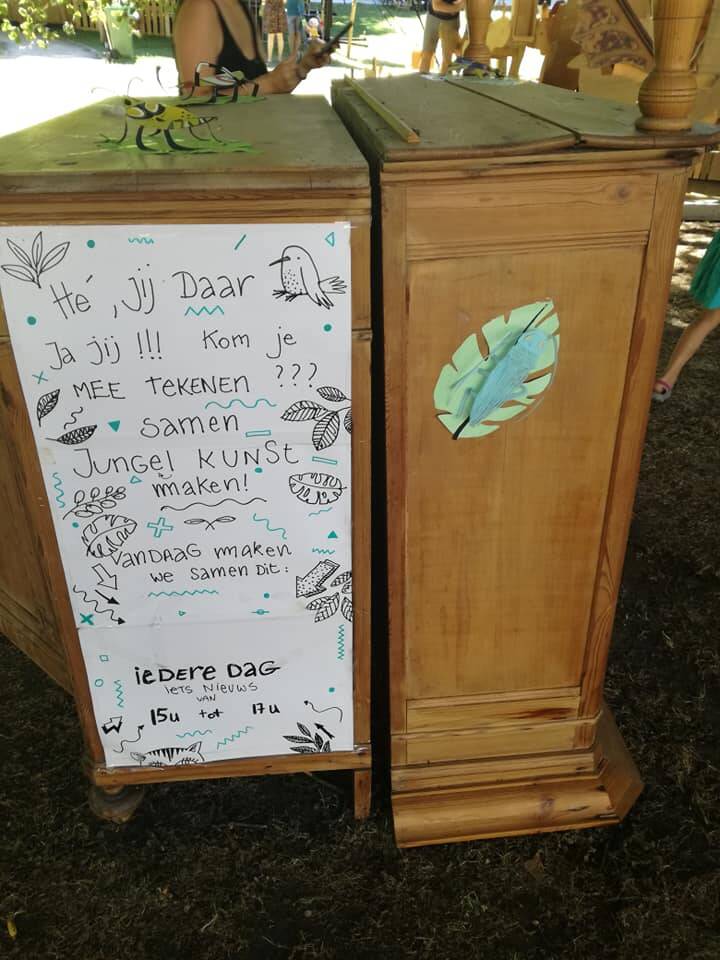 Hé, jij Daar
Ja jij !!! Kom je
MEE TEKENEN ???
samen
JUNGEL KUNST
maken!
VANDAAG maken
we samen Dit:
ieDERE DaG
iets Nieuws
VAN
15u tot 17u